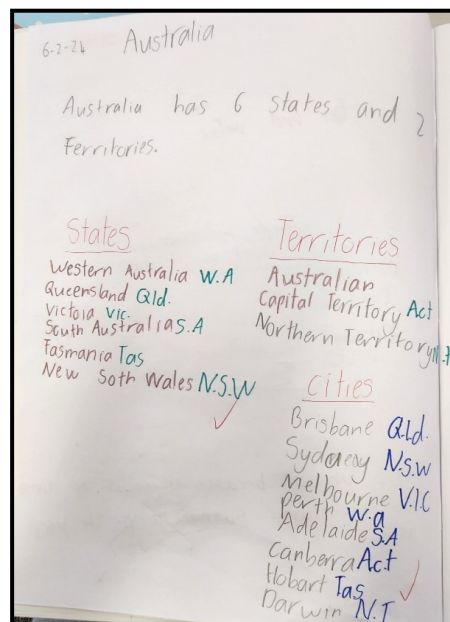 6-2-24 Australia
Australia has 6 states and 2
Ferritories.
States
Western Australia W.A
Queensland Qld.
Victoia Vic.
South Australia S.A
Fasmania Tas
New Soth Wales N.S.W
Territories
Australian
Capital Territory Act
Northern Territory N.T
Cities
Brisbane Q.l.d.
Sydney N.S.W
Melbourne V.I.C
perth W.a
Adelaide S.A
Canberra Act
Hobart Tas
Darwin N.T